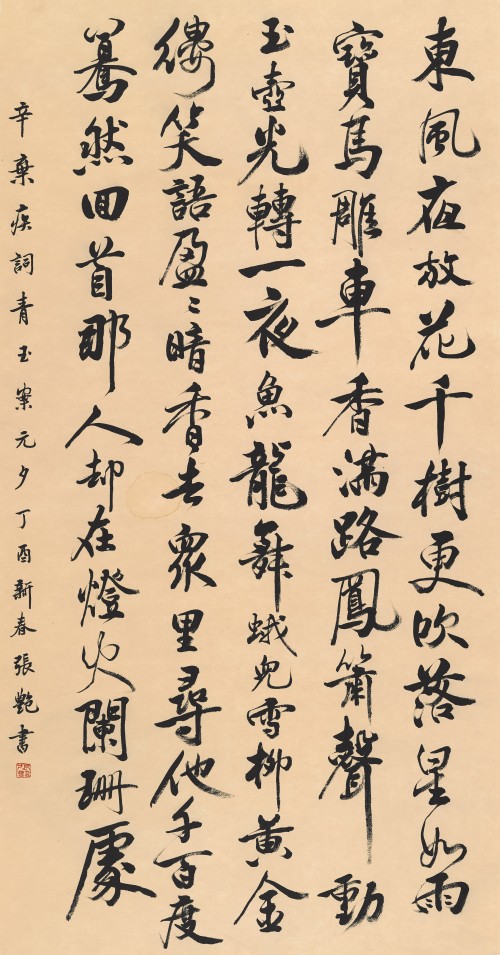 東風夜放花千樹更吹落星如雨
寶馬雕車香滿路鳳簫聲動
玉壺光轉一夜魚龍舞蛾兒雪柳黃金
縷笑語盈〻暗香去眾里尋他千百度
驀然回首那人却在燈火闌珊處
辛棄疾詞青玉案元夕丁酉新春張艷書